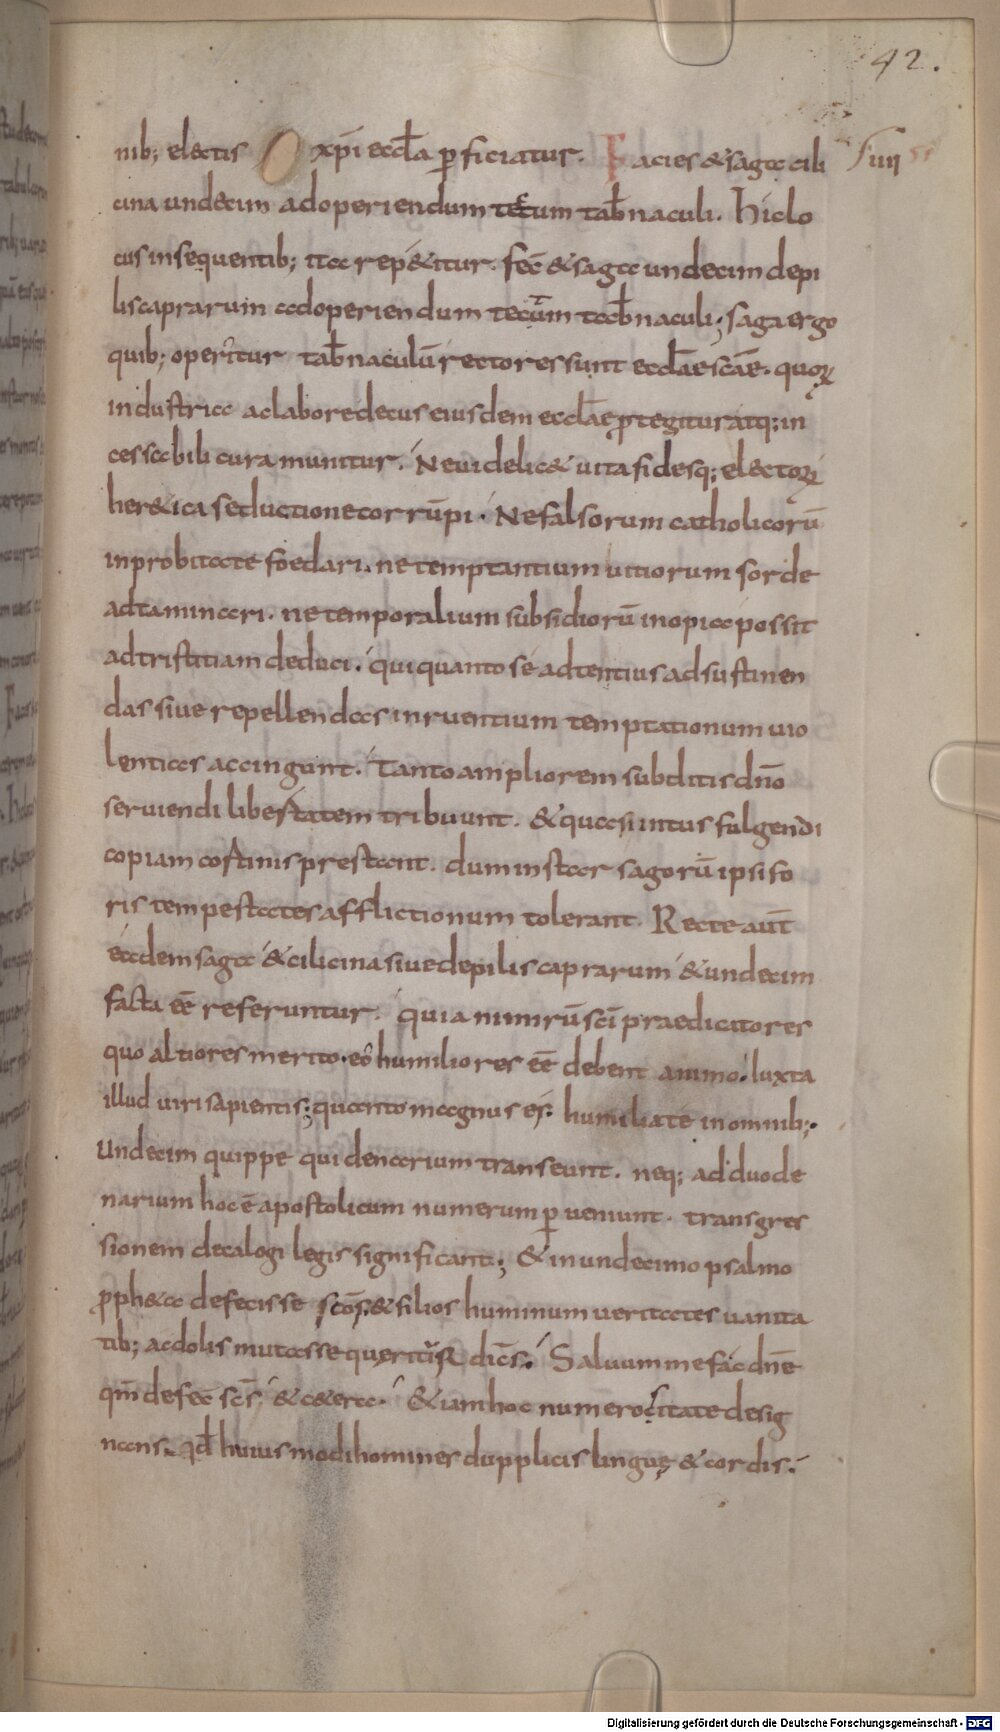 42.
nib; electis xp̄i ecclā ꝑficiatur. Facies & saga cili
iiii
cina undecim ad operiendum tectum tab̄naculi. Hic lo
cus in sequentib; ita rep&itur. fec̄ & saga undecim de pi
lis caprarum ad operiendum tectum tab̄naculi; saga ergo
quib; operitur tab̄naculū rectores sunt ecclāe scāe. quoꝝ
industria ac labore decus eiusdem ecclāe ꝓtegitur atq; in
cessabili cura munitur. Ne uidelic& uita fidesq; electoꝝ
her&ica seductione corrūpi. Ne falsorum catholicorū
inprobitate foedari. ne temptantium uitiorum sorde
adtaminari. ne temporalium subsidiorū inopia possit
ad tristitiam deduci. qui quanto se adtentius ad sustinen
das siue repellendas inruentium temptationum uio
lentias accingunt. Tanto ampliorem subditis dn̄o
seruiendi libertatem tribuunt. & quasi intus fulgendi
copiam cortinis prestant. dum instar sagorū ipsi fo
ris tempestates afflictionum tolerant. Recte aut̄
eadem saga & cilicina siue de pilis caprarum & undecim
facta eē referuntur. quia nimirū sc̄i praedicatores
quo altiores merito. eo humiliores eē debent animo. Iuxta
illud uiri sapientis; quanto magnus es. humilia te in omnib;.
Undecim quippe qui denarium transeunt. neq; ad duode
narium hoc ē apostolicum numerum ꝑueniunt. transgres
sionem decalogi legis significant; & in undecimo psalmo
ꝓph&a defecisse scōs. & filios hominum ueritates uanita
tib; ac dolis mutasse queritur dicēs. Saluum me fac dn̄e
qm̄ defec̄ scs̄ & c&era. & iam hoc numerositate desig
nans. qd̄ huiusmodi homines dupplicis linguę & cordis.
Digitalisierung gefördert durch die Deutsche Forschungsgemeinschaft - DFG